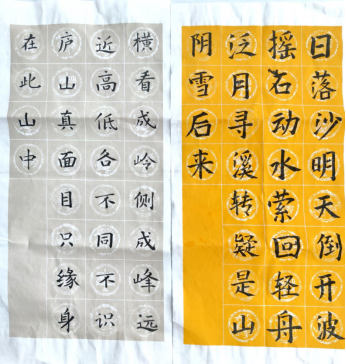 横看成岭侧成峰远
近高低各不同不识
庐山真面目只缘身
在此山中
日落沙明天倒开波
摇石动水萦回轻舟
泛月寻溪转疑是山
阴雪后来